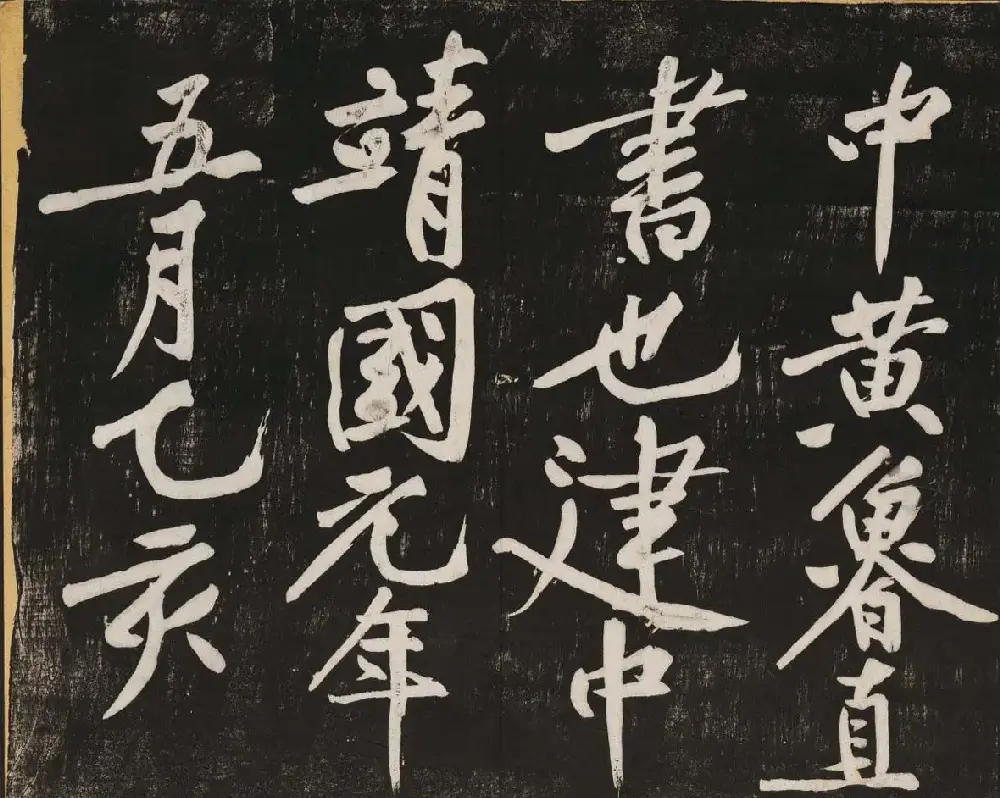 中黄魯直
書也建中
靖國元年
五月乙亥